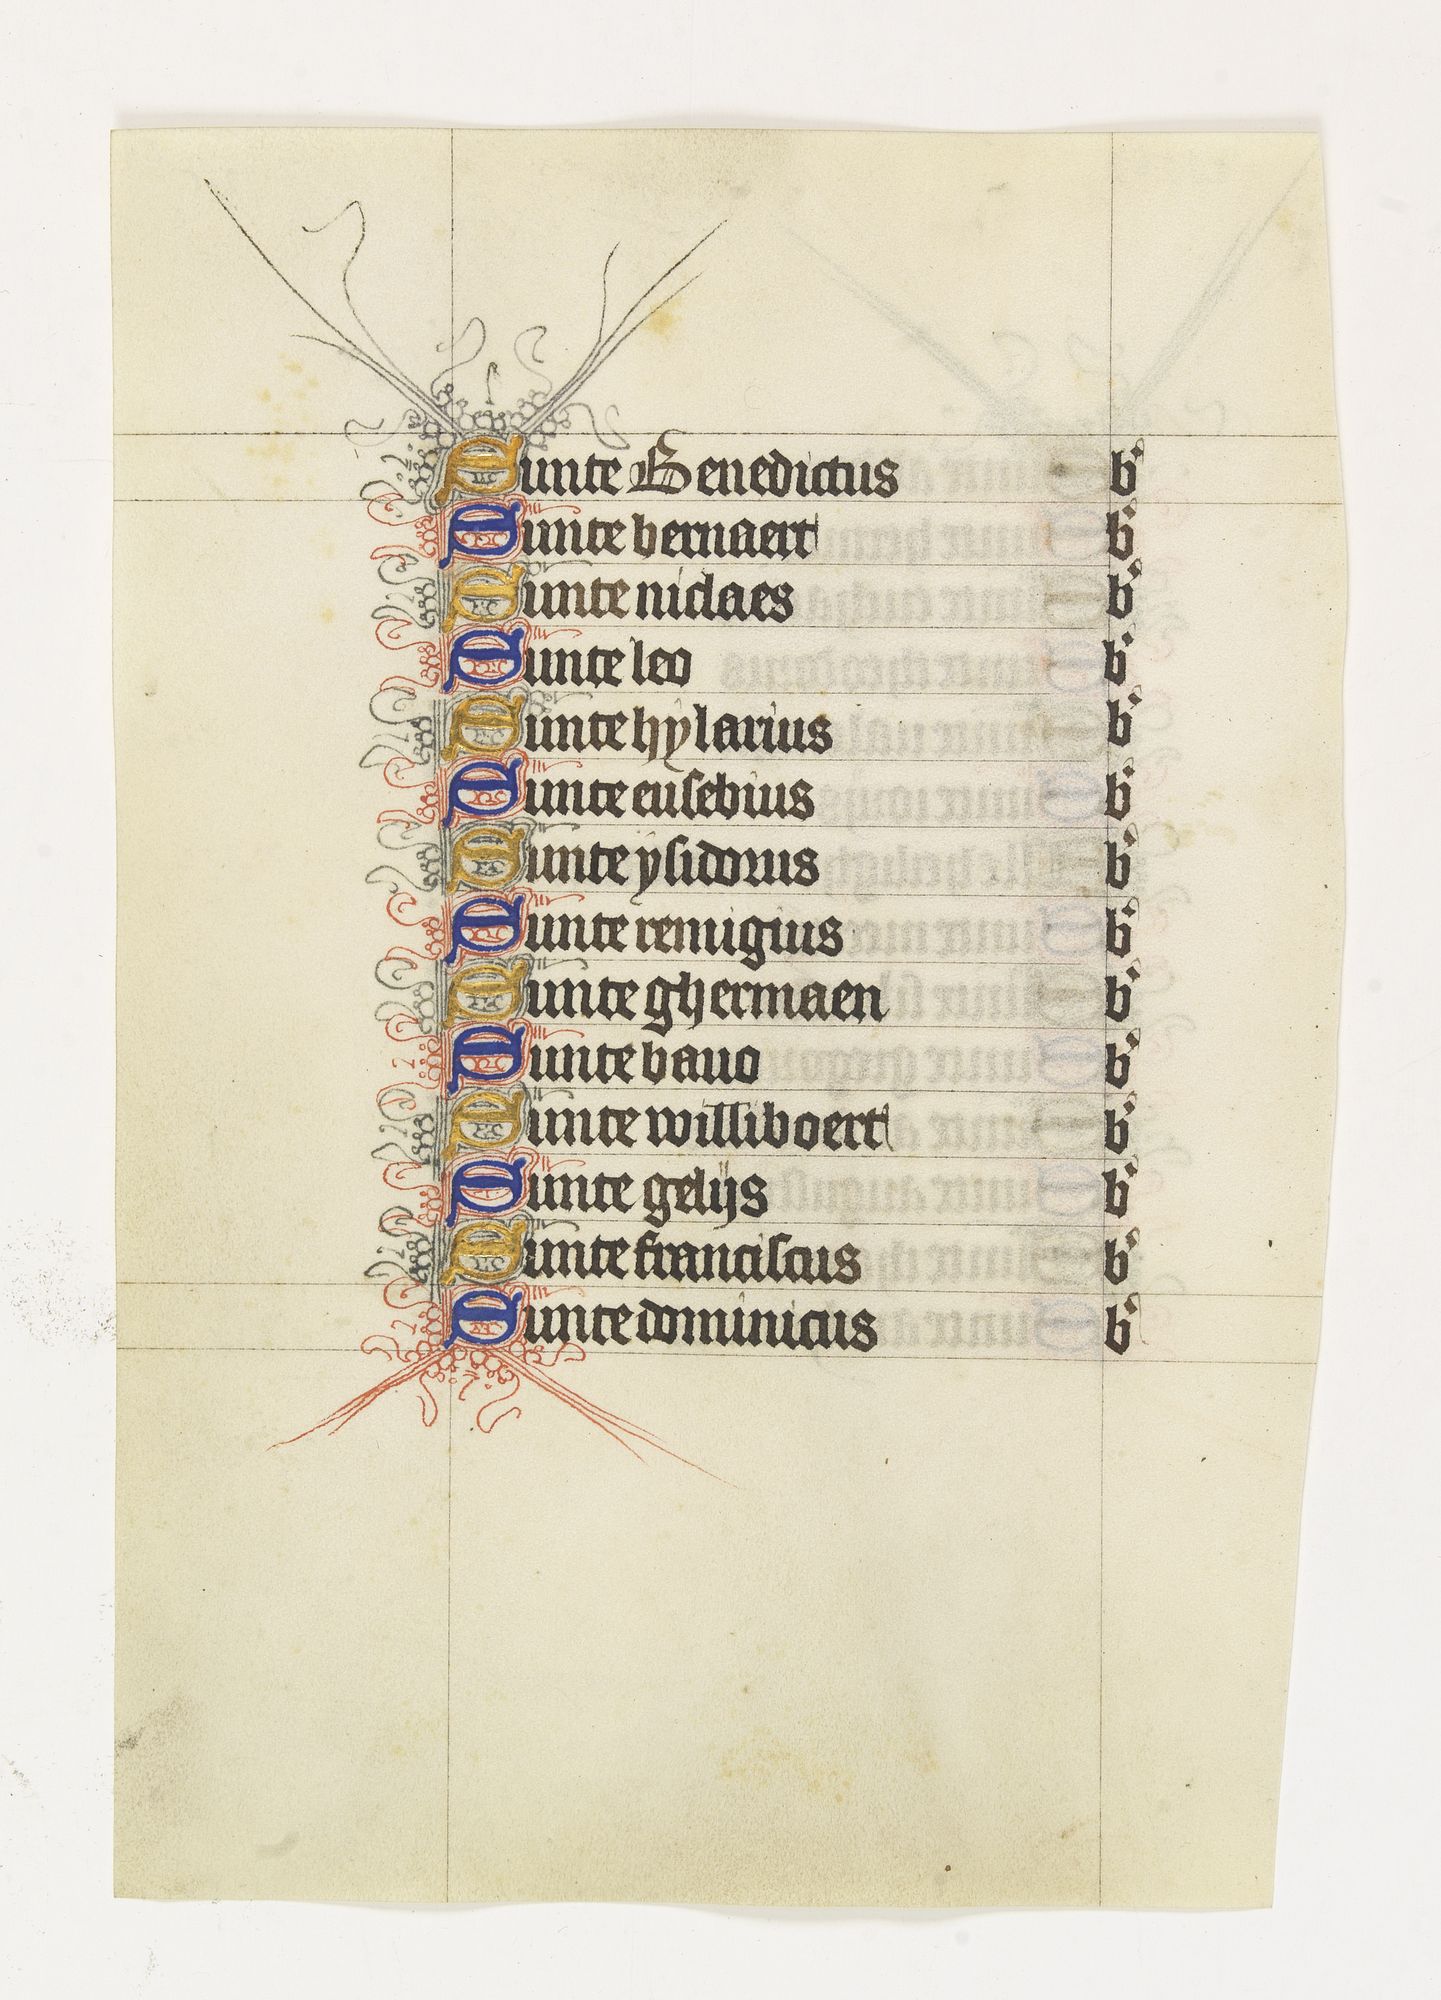 Sunte Benedictus b'
Sunte bernaert b'
Sunte niclaes b'
Sunte leo b'
Sunte hylarius b'
Sunte eusebius b'
Sunte ysidorus b'
Sunte remigius b'
Sunte ghermaen b'
Sunte bauo b'
Sunte williboert b'
Sunte gelijs b'
Sunte franciscus b'
Sunte dominicus b'